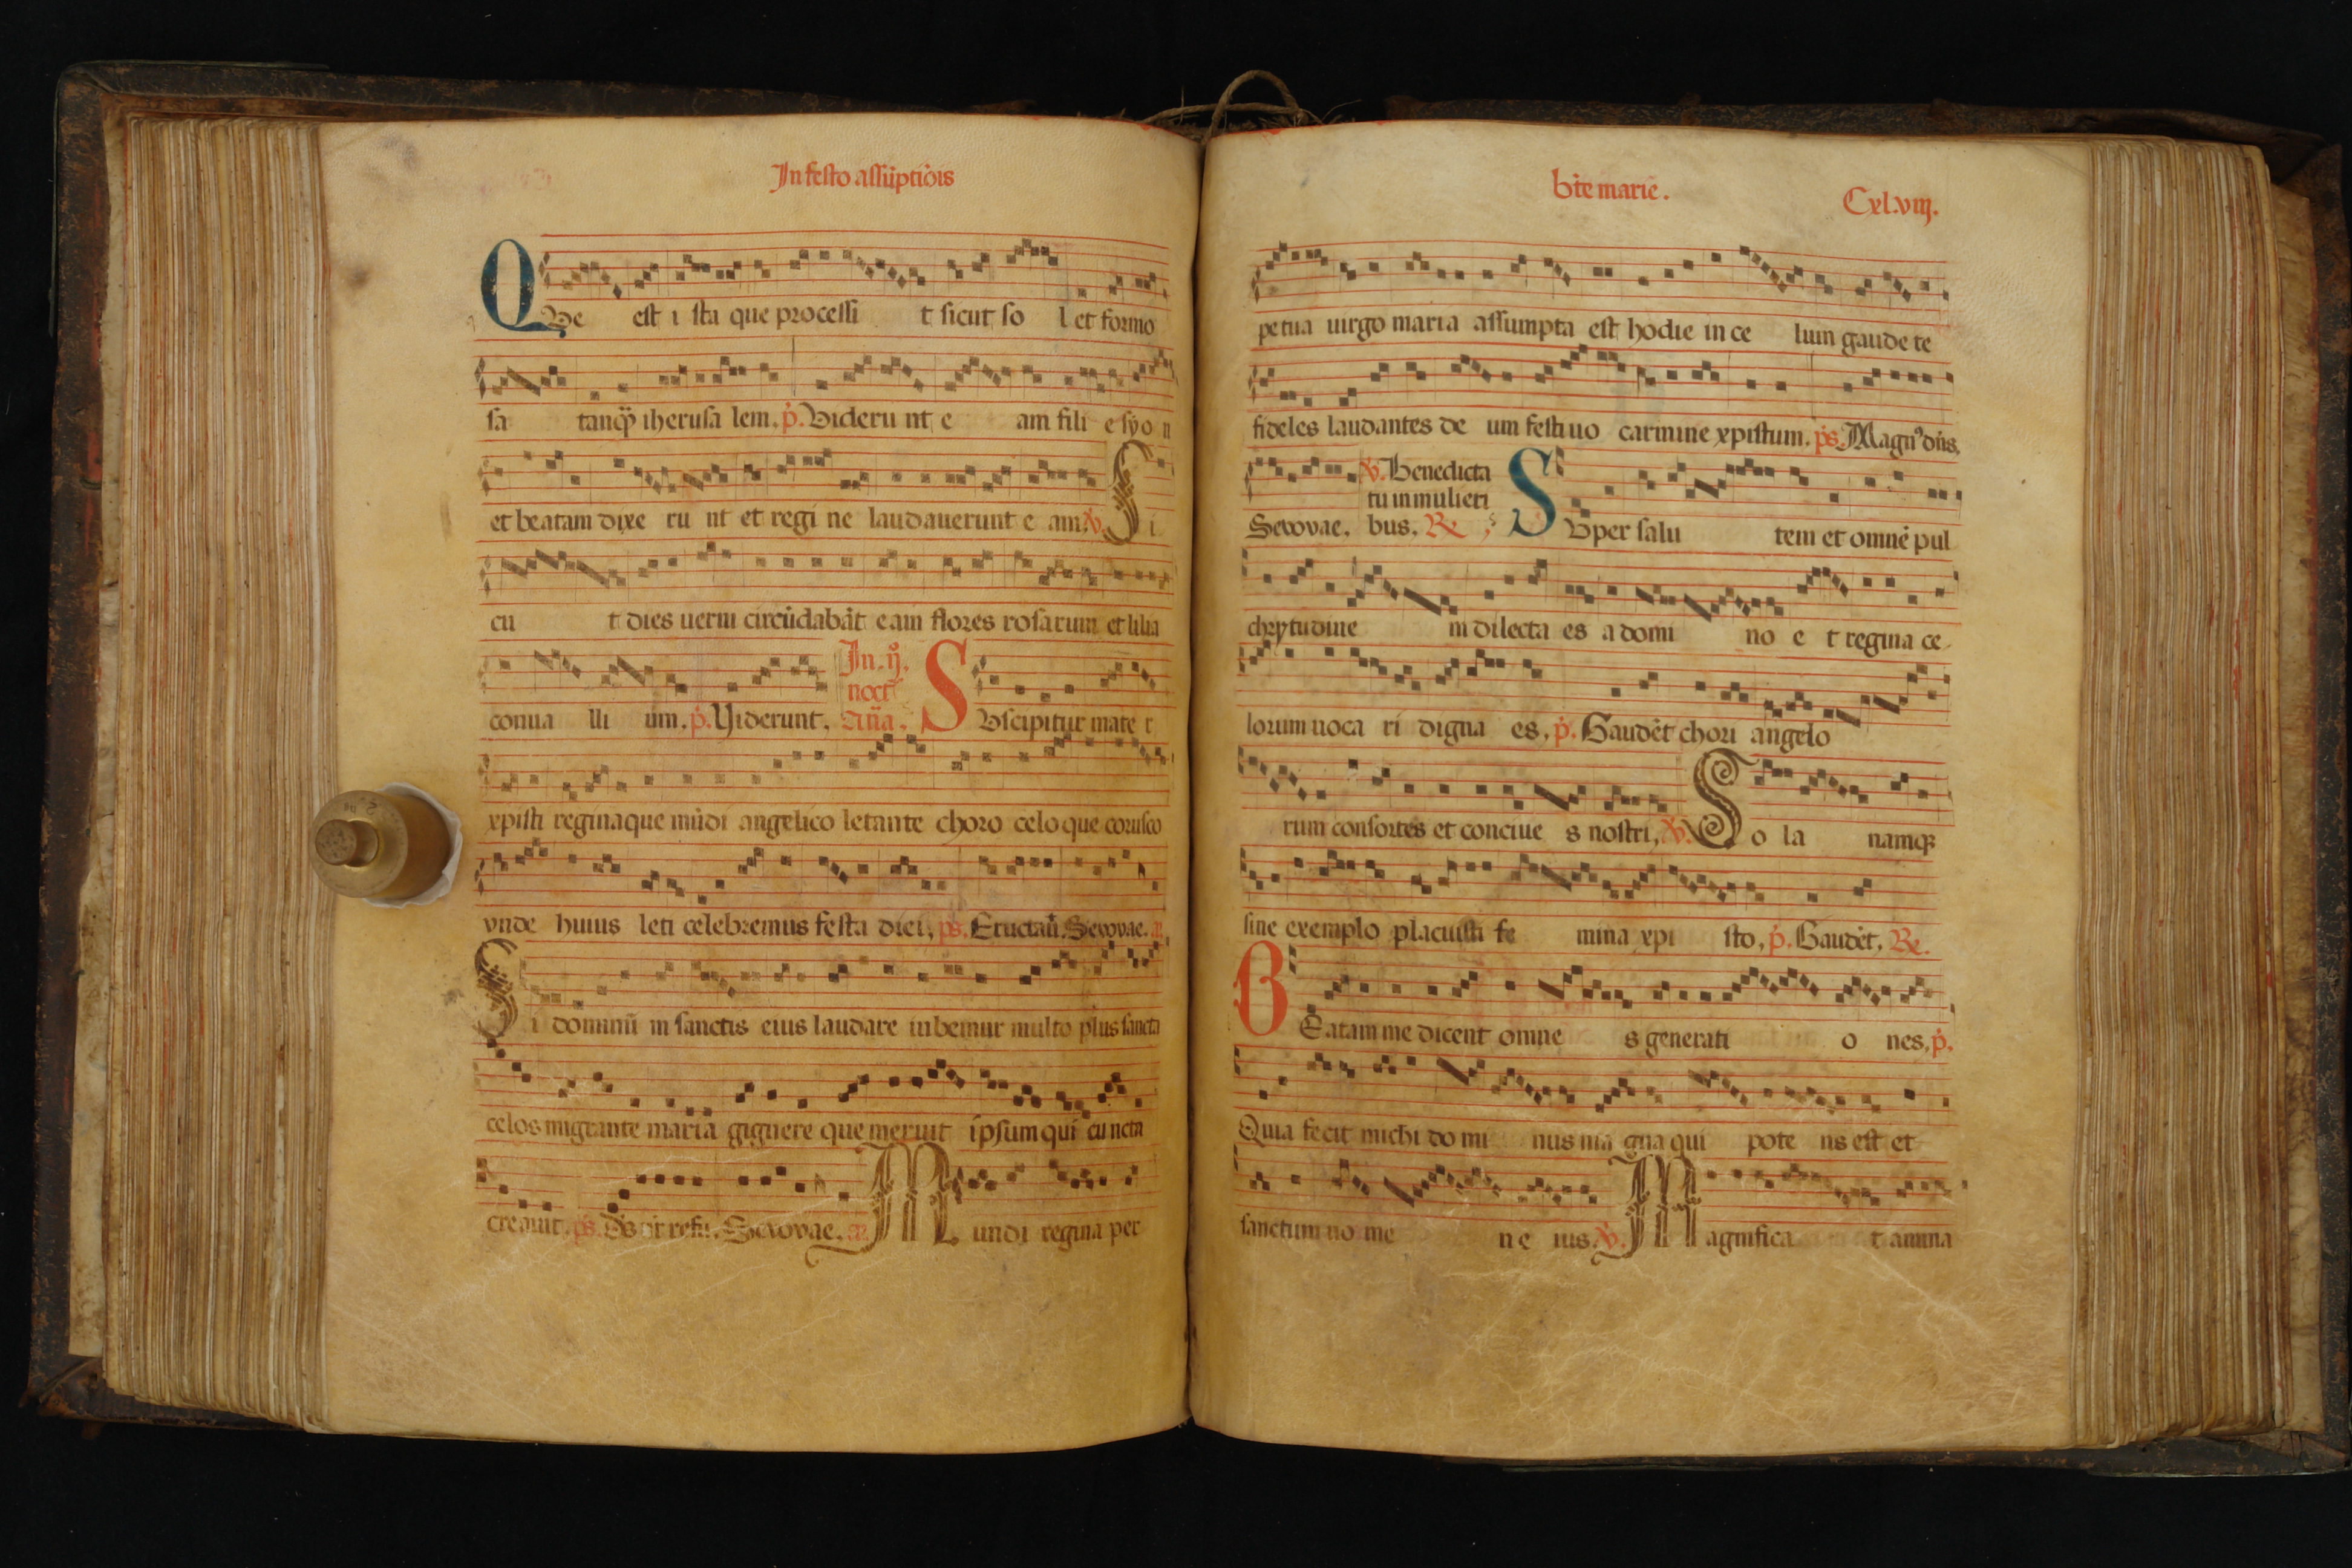 In festo assūptiōis
QVe est i sta que processi t sicut so l et formo
sa tanqȝ iherusa lem. p̄. Videru nt e am fili e syo n
et beatam dixe ru nt et regi ne laudauerunt e am. ℣. Si
cu t dies uerni circūdabāt eam flores rosarum et lilia
conua lli um. p̄. Viderunt. In .ij. noct̄ an̄a. SVscipitur mate r
xpisti reginaque mūdi angelico letante choro celo que corusco
vnde huius leti celebremus festa diei. ps. Eructaū. Seuouae. an̄.
Si dominū in sanctis eius laudare iubemur multo plus sancta
celos migrante maria gignere que meruit ipsum qui cuncta
creauit. ps. Ds̄ nr̄ refu. Seuouae. an̄. Mundi regina per
bt̄e marie.
Cxl.viij.
petua uirgo maria assumpta est hodie in ce lum gaude te
fideles laudantes de um festiuo carmine xpistum. ps. Magn᾽ dn̄s.
Seuouae. ℣. Benedicta tu in mulieri bus. ℟ SVper salu tem et omnē pul
chrytudine m dilecta es a domi no e t regina ce
lorum uoca ri digna es. p̄. Gaudēt chori angelo
rum consortes et conciue s nostri. ℣. So la namqȝ
sine exemplo placuisti fe mina xpi sto. p̄. Gaudēt. ℟.
BEatam me dicent omne s generati o nes. p̄.
Quia fecit michi do mi nus ma gna qui pote ns est et
sanctum no me n e ius. ℣. Magnifica t anima